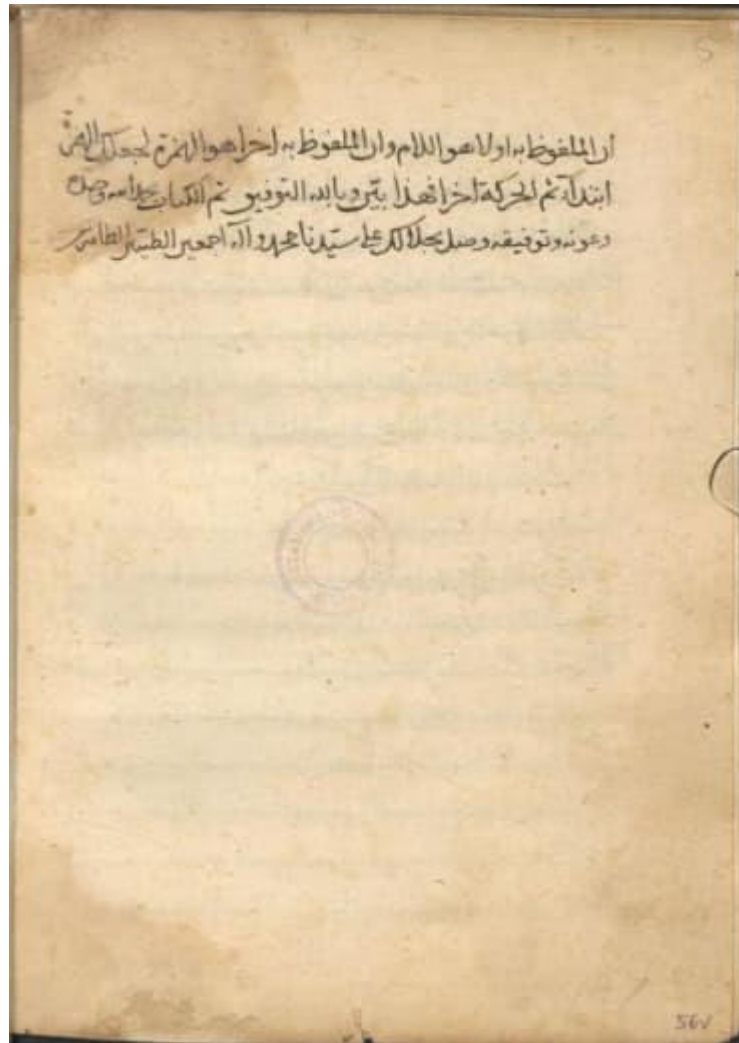 ان الملفوظ به اولا هو اللام وان الملفوظ به اخرا هو الهمزة لجعلك الهمزة
ابتدآء ثم الحركة اخرا فهذا بيّن وبالله التوفيق تم الكتاب بحمد الله
وعونه وتوفيقه وصل بجلالك على سيّدنا محمد وآله اجمعين الطيّبين الطاهرين
56v